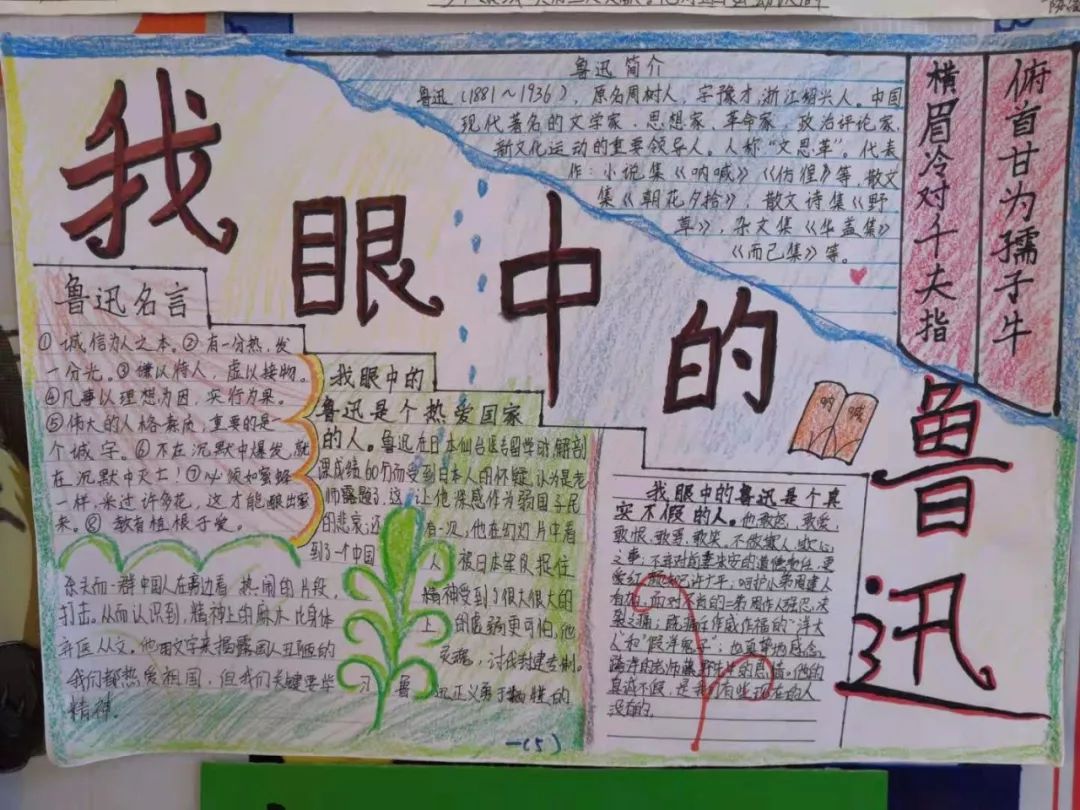 我眼中的鲁迅
鲁迅简介
鲁迅(1881～1936),原名周树人,字豫才,浙江绍兴人。中国
现代著名的文学家、思想家、革命家,政治评论家,
新文化运动的重要领导人。人称“文思革”。代表
作:小说集《呐喊》《彷徨》等,散文
集《朝花夕拾》,散文诗集《野
草》,杂文集《华盖集》
《而已集》等。
横眉冷对千夫指
俯首甘为孺子牛
鲁迅名言
①诚信为人之本。②有一分热,发
一分光。③谦以待人,虚以接物。
④凡事以理想为因,实行为果。
⑤伟大的人格素质,重要的是一
个诚字。⑥不在沉默中爆发,就
在沉默中灭亡!⑦必须如蜜蜂
一样,采过许多花,这才能酿出蜜
来。⑧教育植根于爱。
我眼中的
鲁迅是个热爱国家
的人。鲁迅在日本仙台医专留学时,解剖
课成绩60分而受到日本人的怀疑,认为是老
师露题了,这让他深感作为弱国子民
的悲哀;还有一次,他在幻灯片中看
到了一个中国人被日本军队捉住
杀头而一群中国人在旁边看热闹的片段,精神受到了很大很大的
打击。从而认识到,精神上的麻木比身体上的虚弱更可怕,他
弃医从文。他用文字来揭露国人丑陋的灵魂,讨伐封建专制。
我们都热爱祖国,但我们关键要学习鲁迅正义勇于牺牲的
精神。
呐喊
我眼中的鲁迅是个真
实不假的人。他敢怒,敢爱,
敢恨,敢骂,敢笑。不做
人和“假洋鬼子”;也真挚地感念
真诚不假,是我们有些现在的人
没有的。
一(5)